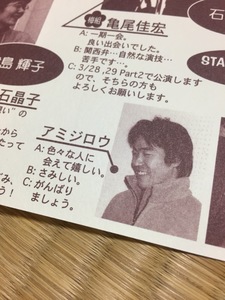 亀尾佳宏
A: 一期一会。
良い出会いでした。
B: 関西弁…自然な演技…
苦手です…。
C: 3/28,29 Part2で公演します
ので、そちらの方も
よろしくお願いします。
石
STA
輝子
石晶子
い"の
から
たって
アミジロウ
A: 色々な人に
会えて嬉しい。
B: さみしい。
C: がんばり
ましょう。